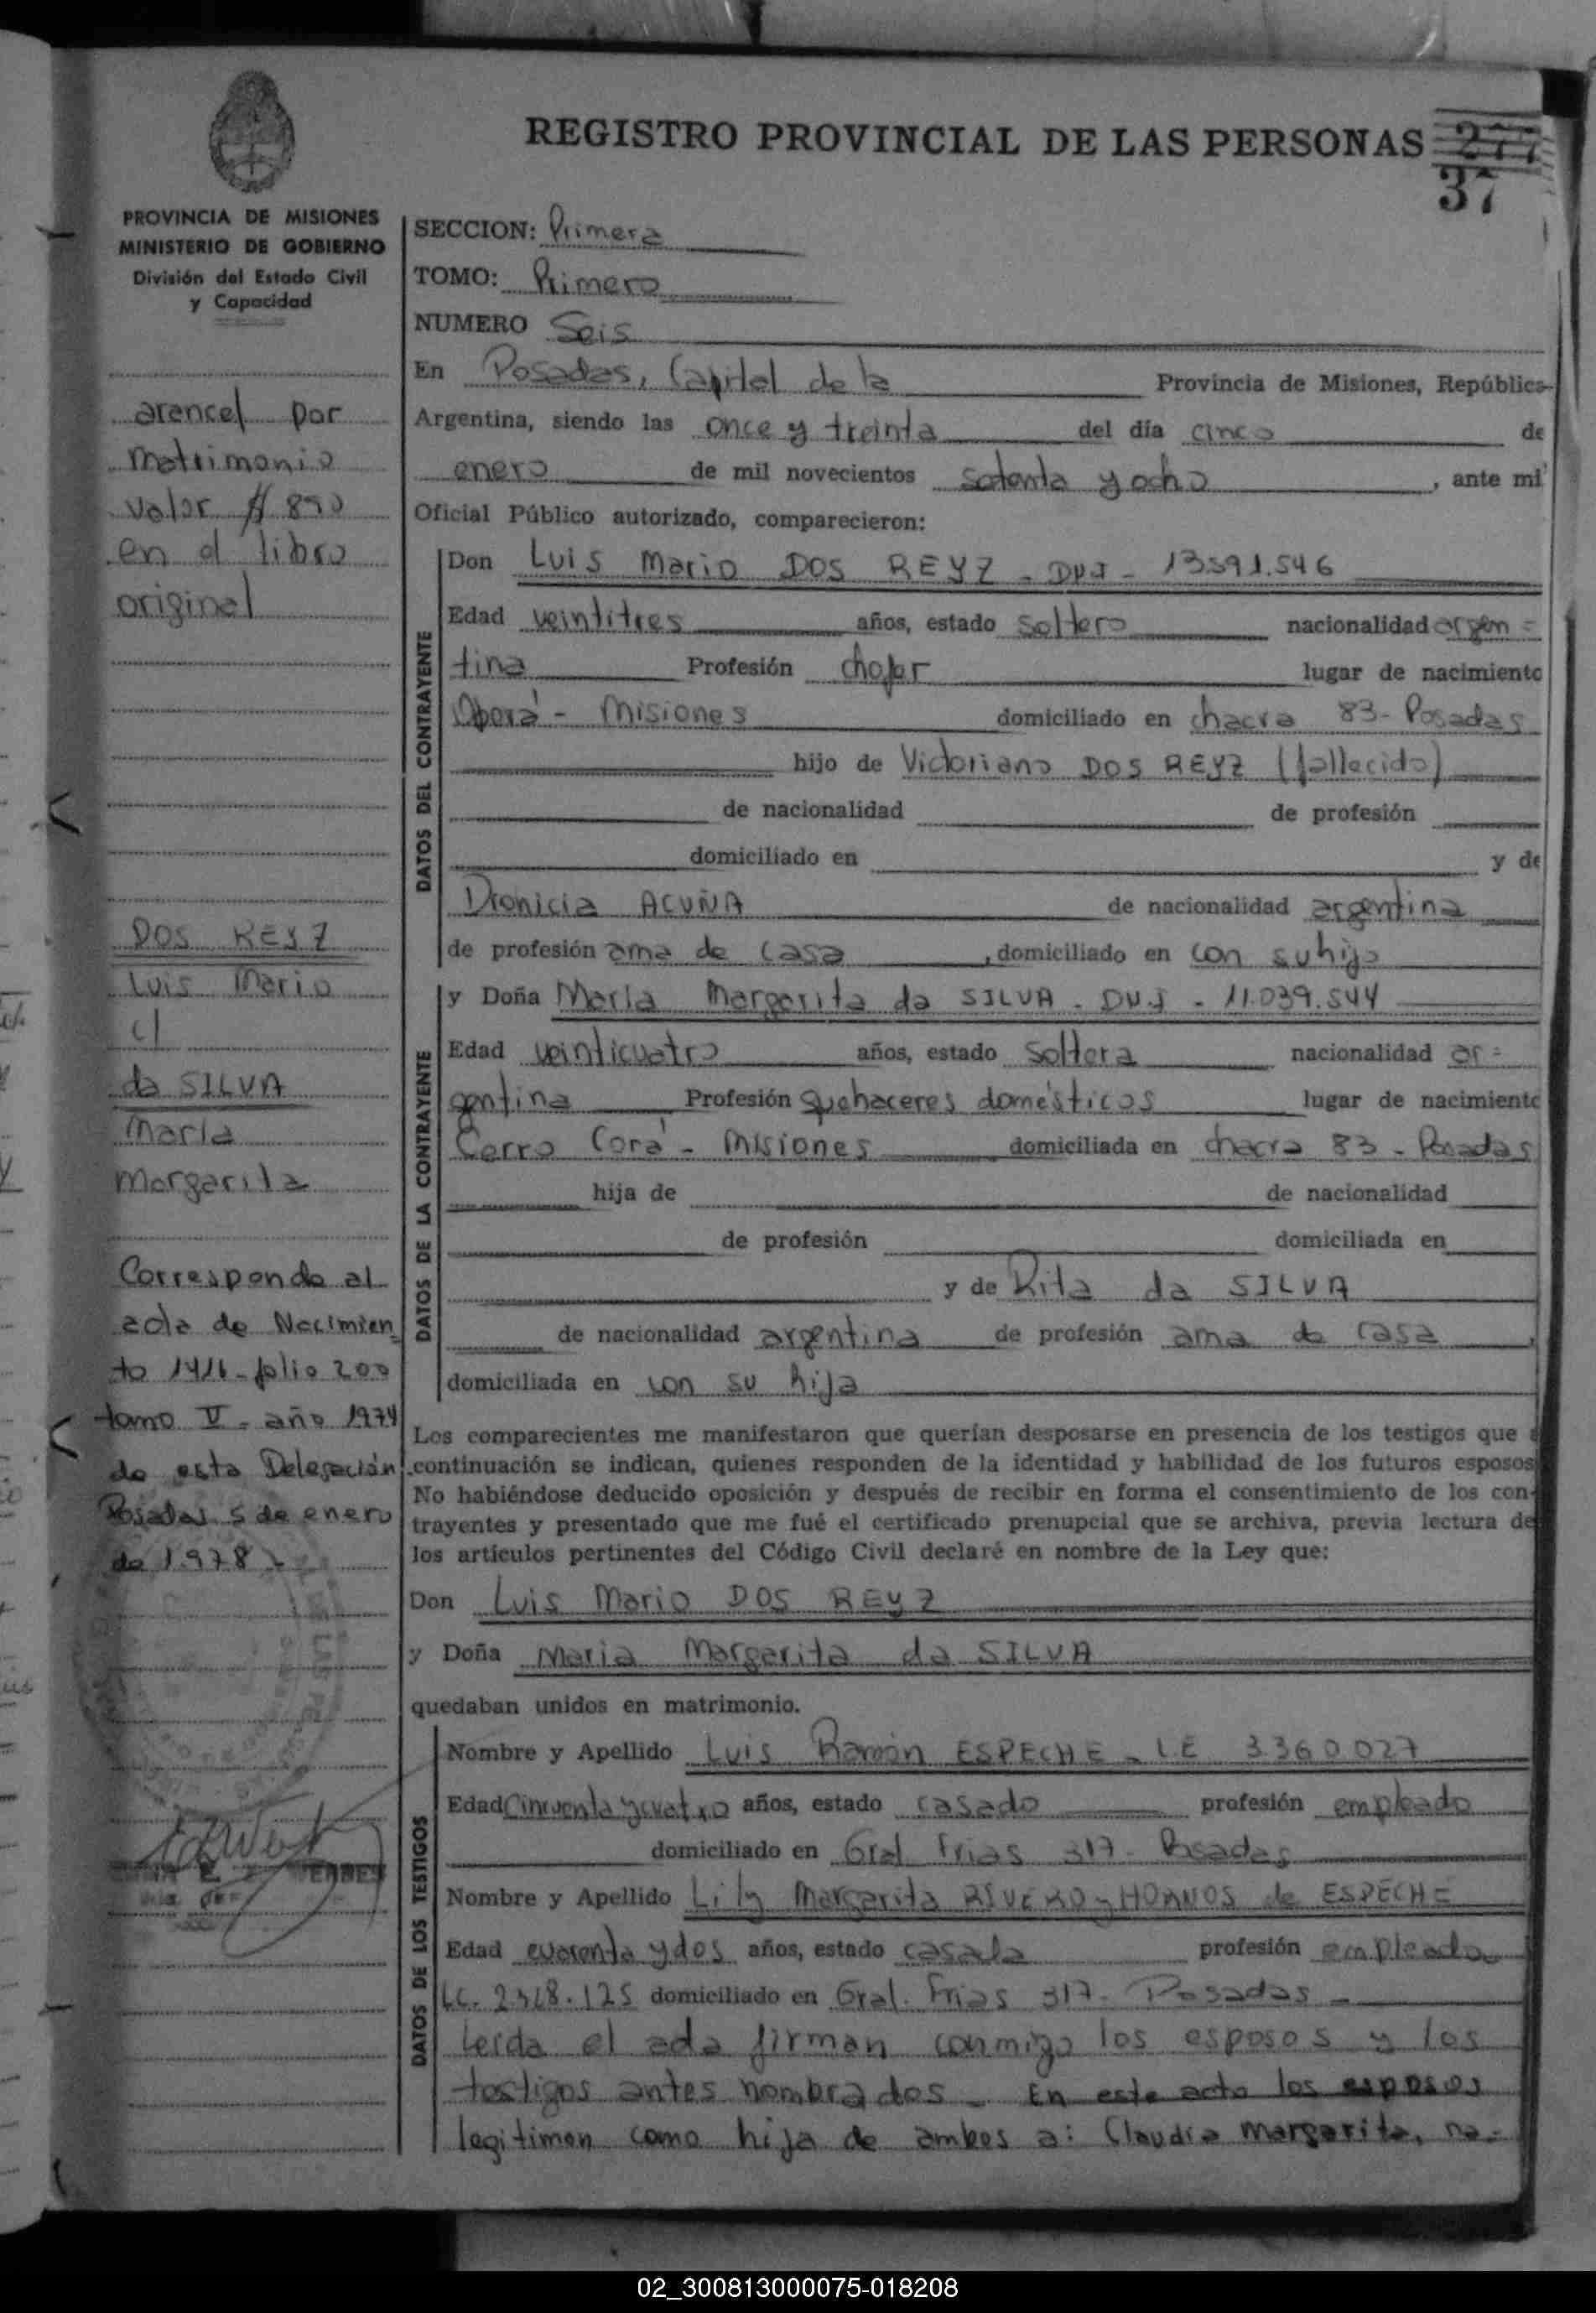 REGISTRO PROVINCIAL DE LAS PERSONAS 277
37
PROVINCIA DE MISIONES
MINISTERIO DE GOBIERNO
División del Estado Civil
y Capacidad
arancel por
Matrimonio
valor $ 890
en el libro
original
DOS REYZ
Luis Mario
c/
da SILVA
María
Margarita
Corresponde al
acta de Nacimien
to 1416 - folio 200
tomo V - año 1974
de esta Delegación
Posadas 5 de enero
de 1.978
SECCION: Primera
TOMO: Primero
NUMERO Seis
En Posadas, Capital de la Provincia de Misiones, República
Argentina, siendo las once y treinta del día cinco de
enero de mil novecientos setenta y ocho, ante mi
Oficial Público autorizado, comparecieron:
DATOS DEL CONTRAYENTE
Don Luis Mario DOS REYZ - DNI - 13.591.546
Edad veintitres años, estado soltero nacionalidad argen=
tina Profesión chofer lugar de nacimiento
Oberá - Misiones domiciliado en chacra 83 - Posadas
hijo de Victoriano DOS REYZ (fallecido)
de nacionalidad de profesión
domiciliado en y de
Dionicia ACUÑA de nacionalidad argentina
de profesión ama de casa, domiciliado en con su hijo
DATOS DE LA CONTRAYENTE
y Doña María Margarita da SILVA - DNI - 11.039.544
Edad veinticuatro años, estado soltera nacionalidad ar=
gentina Profesión quehaceres domésticos lugar de nacimiento
Cerro Corá - Misiones domiciliada en chacra 83 - Posadas
hija de de nacionalidad
de profesión domiciliada en
y de Rita da SILVA
de nacionalidad argentina de profesión ama de casa,
domiciliada en con su hija
Los comparecientes me manifestaron que querían desposarse en presencia de los testigos que a
continuación se indican, quienes responden de la identidad y habilidad de los futuros esposos
No habiéndose deducido oposición y después de recibir en forma el consentimiento de los con-
trayentes y presentado que me fué el certificado prenupcial que se archiva, previa lectura de
los artículos pertinentes del Código Civil declaré en nombre de la Ley que:
Don Luis Mario DOS REYZ
y Doña María Margarita da SILVA
quedaban unidos en matrimonio.
DATOS DE LOS TESTIGOS
Nombre y Apellido Luis Ramón ESPECHE - L.E 3360027
Edad Cincuenta y cuatro años, estado casado profesión empleado
domiciliado en Gral Frias 317 - Posadas
Nombre y Apellido Lily Margarita RIVERO y HORNOS de ESPECHE
Edad cuarenta y dos años, estado casada profesión empleada
LC. domiciliado en Gral. Frias 317 - Posadas -
Leída el acta firman conmigo los esposos y los
testigos antes nombrados - En este acto los esposos
legitiman como hija de ambos a: Claudia Margarita, na-
02_300813000075-018208